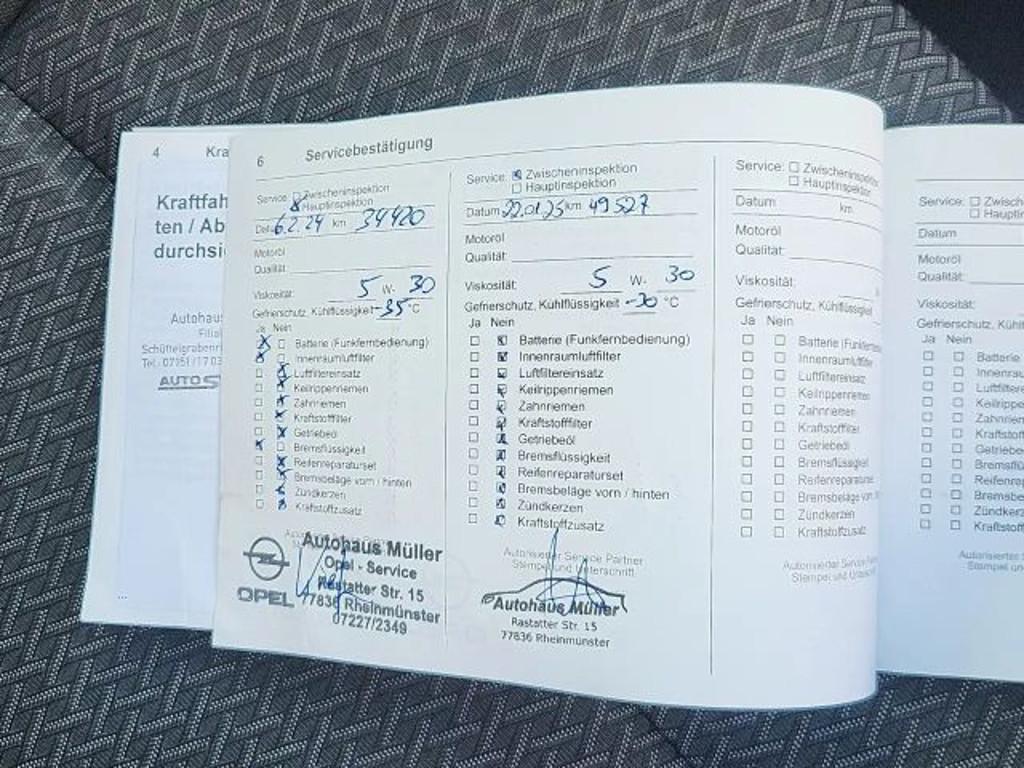 4 Kra
Kraftfah
ten / Ab
durchsi
Autohaus
Filial
Schüttelgrabenr
Tel.: 07151/17 03
AUTO
6 Servicebestätigung
Service: Zwischeninspektion
Hauptinspektion
6.2.24 km 34420
Motoröl
Qualität:
Viskosität: 5 W- 30
Gefrierschutz, Kühlflüssigkeit -35 °C
Ja Nein
Batterie (Funkfernbedienung)
Innenraumluftfilter
Luftfiltereinsatz
Keilrippenriemen
Zahnriemen
Kraftstofffilter
Getriebeöl
Bremsflüssigkeit
Reifenreparaturset
Bremsbeläge vorn / hinten
Zündkerzen
Kraftstoffzusatz
Autohaus Müller
Opel - Service
Rastatter Str. 15
77836 Rheinmünster
07227/2349
OPEL
Service: Zwischeninspektion
Hauptinspektion
Datum 22.01.25 km 49527
Motoröl
Qualität:
Viskosität: 5 W- 30
Gefrierschutz, Kühlflüssigkeit -30 °C
Ja Nein
Batterie (Funkfernbedienung)
Innenraumluftfilter
Luftfiltereinsatz
Keilrippenriemen
Zahnriemen
Kraftstofffilter
Getriebeöl
Bremsflüssigkeit
Reifenreparaturset
Bremsbeläge vorn / hinten
Zündkerzen
Kraftstoffzusatz
Autorisierter Service Partner
Stempel und Unterschrift
Autohaus Müller
Rastatter Str. 15
77836 Rheinmünster
Service: Zwischeninspektion
Hauptinspektion
Datum km
Motoröl
Qualität:
Viskosität:
Gefrierschutz, Kühlflüssigkeit
Ja Nein
Batterie (Funkfernbe
Innenraumluftfilter
Luftfiltereinsatz
Keilrippenriemen
Zahnriemen
Kraftstofffilter
Getriebeöl
Bremsflüssigkeit
Reifenreparaturset
Bremsbeläge vorn
Zündkerzen
Kraftstoffzusatz
Autorisierter Service
Stempel und Untersch
Service: Zwisch
Hauptin
Datum
Motoröl
Qualität:
Viskosität:
Gefrierschutz, Kühlf
Ja Nein
Batterie
Innenrau
Luftfilter
Keilripp
Zahnriem
Kraftstof
Getriebe
Bremsflü
Reifenre
Bremsbe
Zündkerz
Kraftstoff
Autorisierter
Stempel un